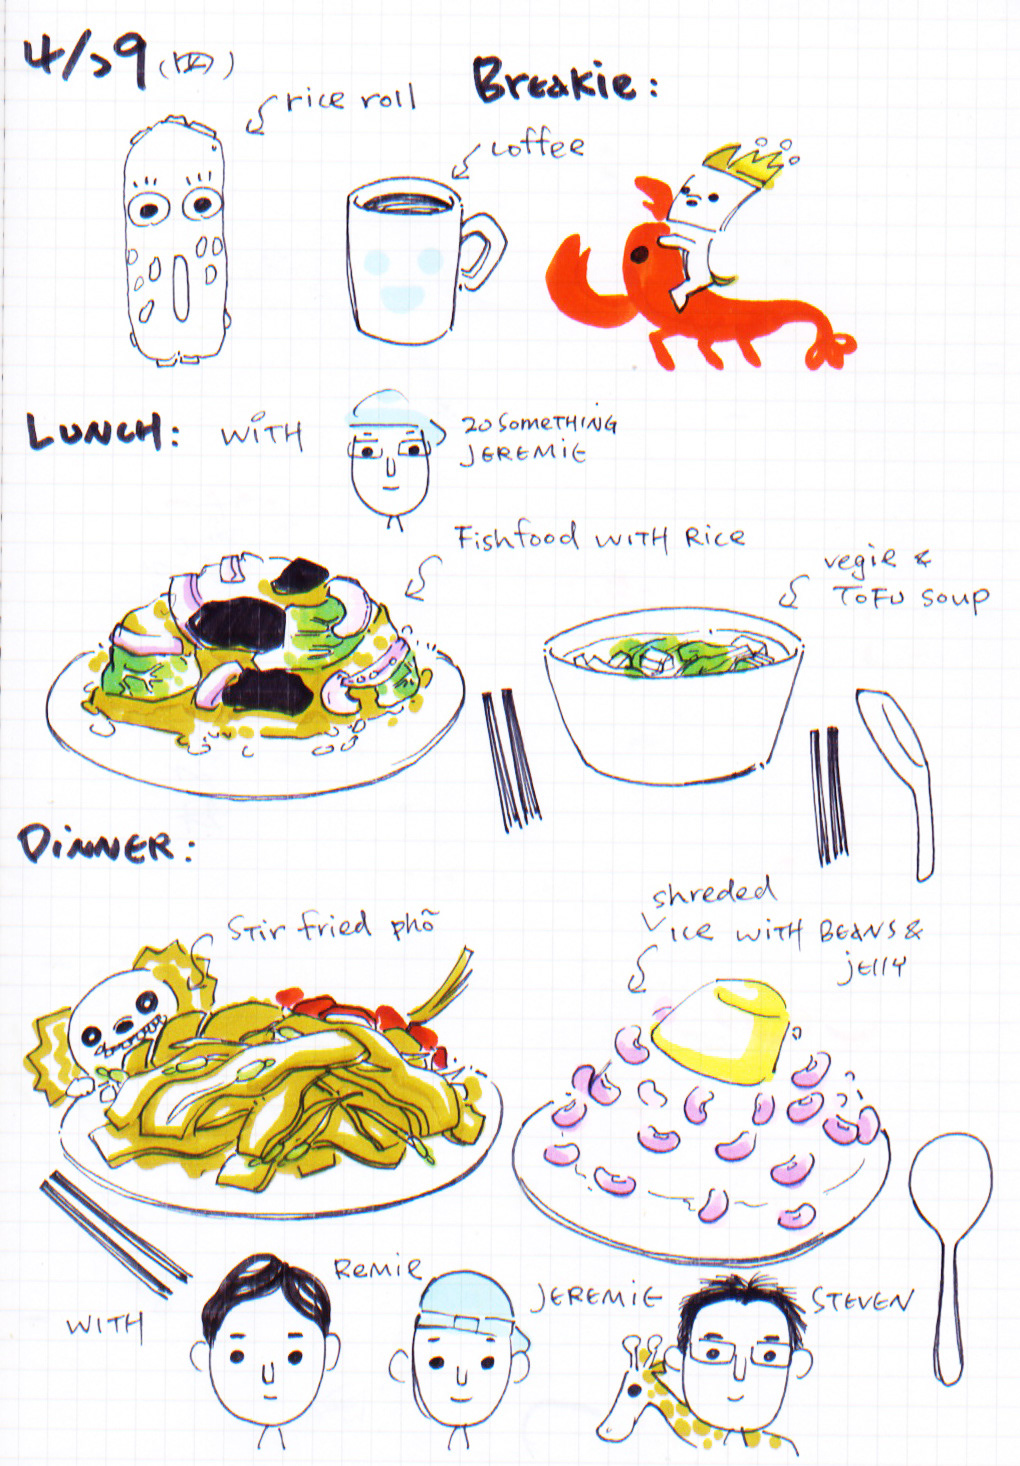 4/29 (四)
Breakie:
rice roll
coffee
LUNCH: WITH
20 SOMETHING
JEREMIE
Fishfood WITH RICE
vegie &
TOFU SOUP
DINNER:
Stir fried phõ
shreded
ICE WITH BEANS &
jElly
WITH
REMIE
JEREMIE
STEVEN